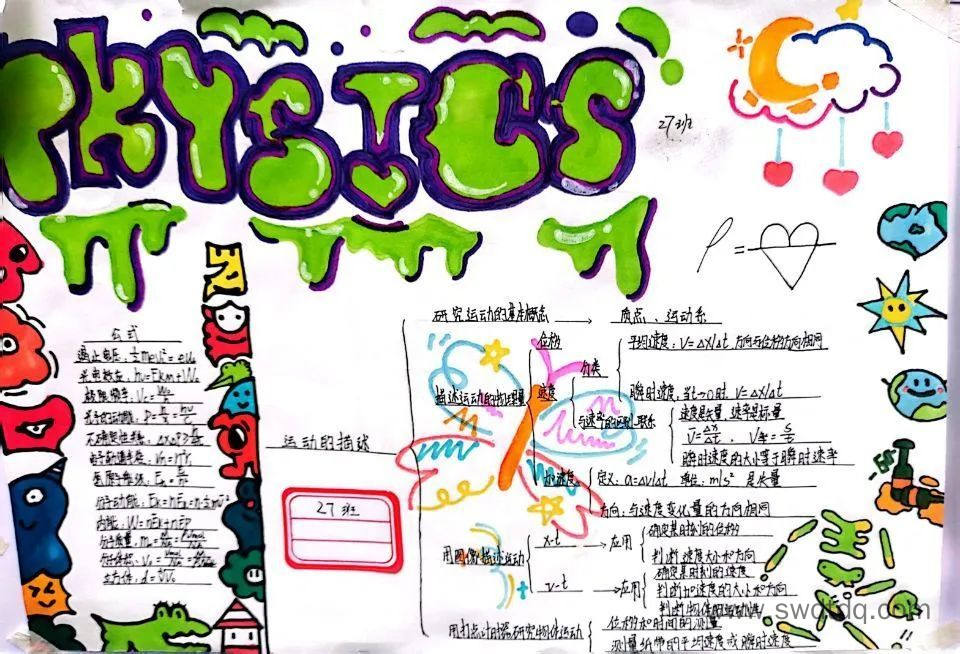 PHYSICS
27班
ρ=
公式
遏止电压, ½mev²=eUc
光电效应, hν=Ekm+W
极限频率, Vc=
光子的动量, P=
不确定性关系, ΔxΔP
分子动能, Ek=
内能, W=nEk+nEp
分子质量, m=
立方体, d=
运动的描述
27班
研究运动的基本概念 → 质点、运动系
描述运动的物理量
位移
速度
分类
平均速度, V=Δx/Δt 方向与位移方向相同
瞬时速度, 当t→0时 V=Δx/Δt
与速率的区别、联系
速度是矢量, 速率是标量
V=Δx/Δt , V率=s/t
瞬时速度的大小等于瞬时速率
加速度
定义, a=Δv/Δt 单位, m/s² 是矢量
方向, 与速度变化量的方向相同
用图像描述运动
x-t → 应用
确定某时刻的位移
判断速度大小和方向
v-t → 应用
确定某时刻的速度
判断加速度的大小和方向
判断物体的运动
用打点计时器研究物体运动
位移和时间的测量
测量纸带的平均速度或瞬时速度
www.swqtdq.com